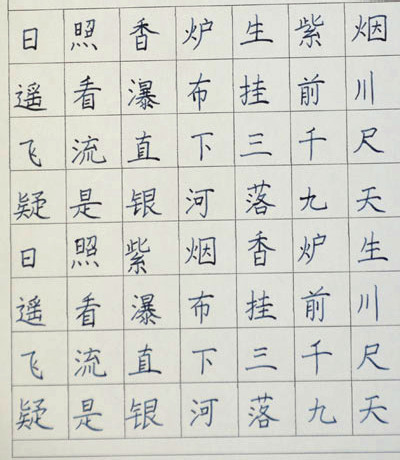 日照香炉生紫烟
遥看瀑布挂前川
飞流直下三千尺
疑是银河落九天
日照紫烟香炉生
遥看瀑布挂前川
飞流直下三千尺
疑是银河落九天